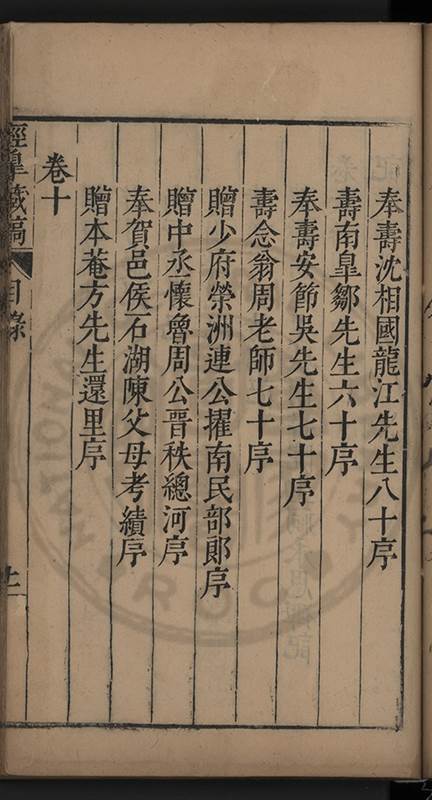 奉壽沈相國龍江先生八十序
壽南臯鄒先生六十序
奉壽安節吳先生七十序
壽念翁周老師七十序
贈少府榮洲連公擢南民部郞序
贈中丞懷魯周公晉秩總河序
奉賀邑侯石湖陳父母考績序
贈本菴方先生還里序
卷十
涇臯藏稿 目錄